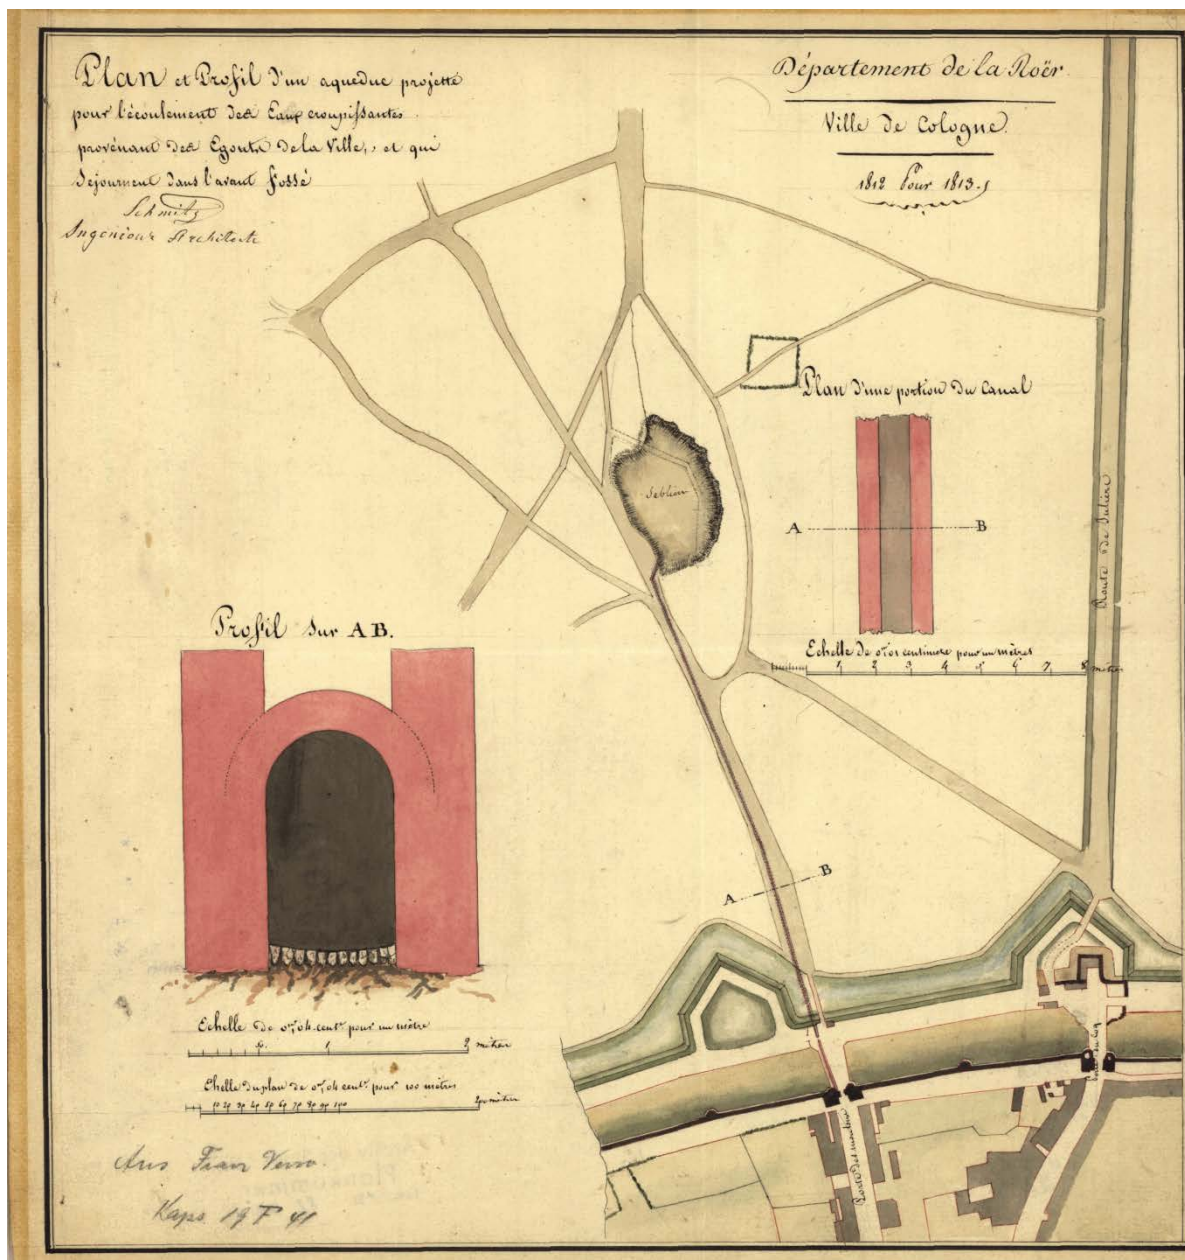 Plan et Profil d'un aqueduc projetté
pour l'écoulement des Eaux croupissantes
provénant des Egouts de la Ville, et qui
Sejournent dans l'avant fossé
Schmitz
Ingénieur Architecte
Département de la Roër
Ville de Cologne.
1812 Pour 1813.
Plan d'une portion du Canal
A
B
Echelle de 0m,01 centimetre pour un mètres
1 2 3 4 5 6 7 8 mètres
Route de Juliers
Profil sur A B.
A
B
Echelle de 0m,04 centr pour un mètre
0 1 2 mètres
Ehelle du plan de 0m,04 centr pour 100 mètres
10 20 30 40 50 60 70 80 90 100 200 mètres
Porte des
Porte du Coq
Aus Franz Verw.
Kaps 19 F 41